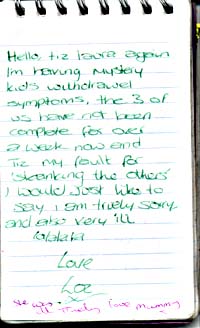 Hello, tiz laura again
I'm having mystery
kids withdrawel
symptoms, the 3 of
us have not been
complete for over
a week now and
Tiz my fault for
'skanking the others'
I would just like to
say i am truely sorry
and also very ill
lalalala
Love
Loz
x
she was
ill truely love mummy